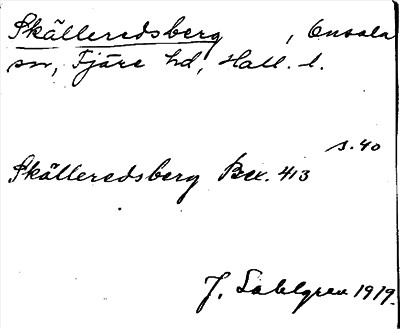 Skälleredsberg, Onsala
sn, Fjäre hd, Hall. l.
s. 40
Skälleredsberg Bex. 413
J. Sahlgren 1919.